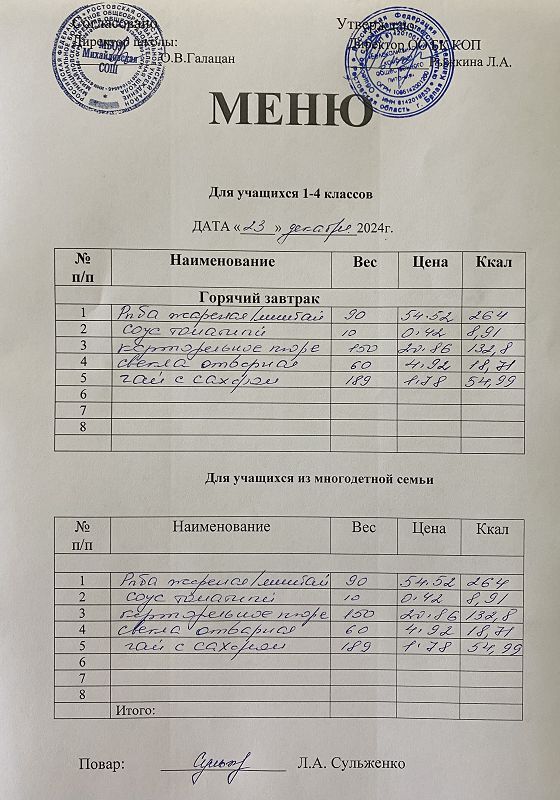 Согласовано Утверждаю
Директор школы: Директор ОО БККОП
О.В.Галацан Рычкина Л.А.
МБОУ
Михайловская
СОШ
МЕНЮ
Для учащихся 1-4 классов
ДАТА «23» декабря 2024г.
№ п/п Наименование Вес Цена Ккал
Горячий завтрак
1 Рыба жареная/минтай 90 54.52 264
2 соус томатный 10 0.42 8,91
3 картофельное пюре 150 20.86 132,8
4 свекла отварная 60 4.92 18,71
5 чай с сахаром 189 1.78 54,99
6
7
8
Для учащихся из многодетной семьи
№ п/п Наименование Вес Цена Ккал
1 Рыба жареная/минтай 90 54.52 264
2 соус томатный 10 0.42 8,91
3 картофельное пюре 150 20.86 132,8
4 свекла отварная 60 4.92 18,71
5 чай с сахаром 189 1.78 54,99
6
7
8
Итого:
Повар: Л.А. Сульженко